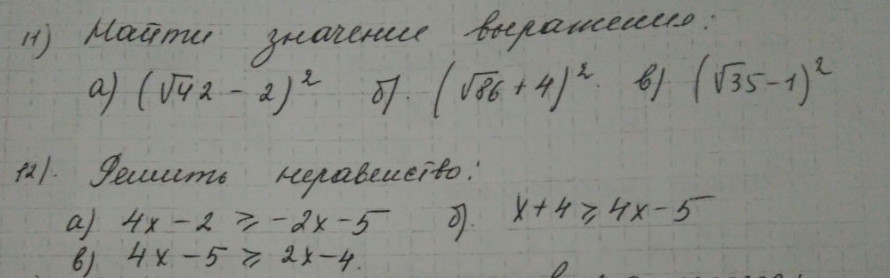 11) Найти значение выражение:
а) (√42 - 2)² б). (√86 + 4)². в) (√35 - 1)²
12). Решить неравенство:
а) 4x - 2 ⩾ -2x - 5 б). x + 4 ⩾ 4x - 5
в) 4x - 5 ⩾ 2x - 4.